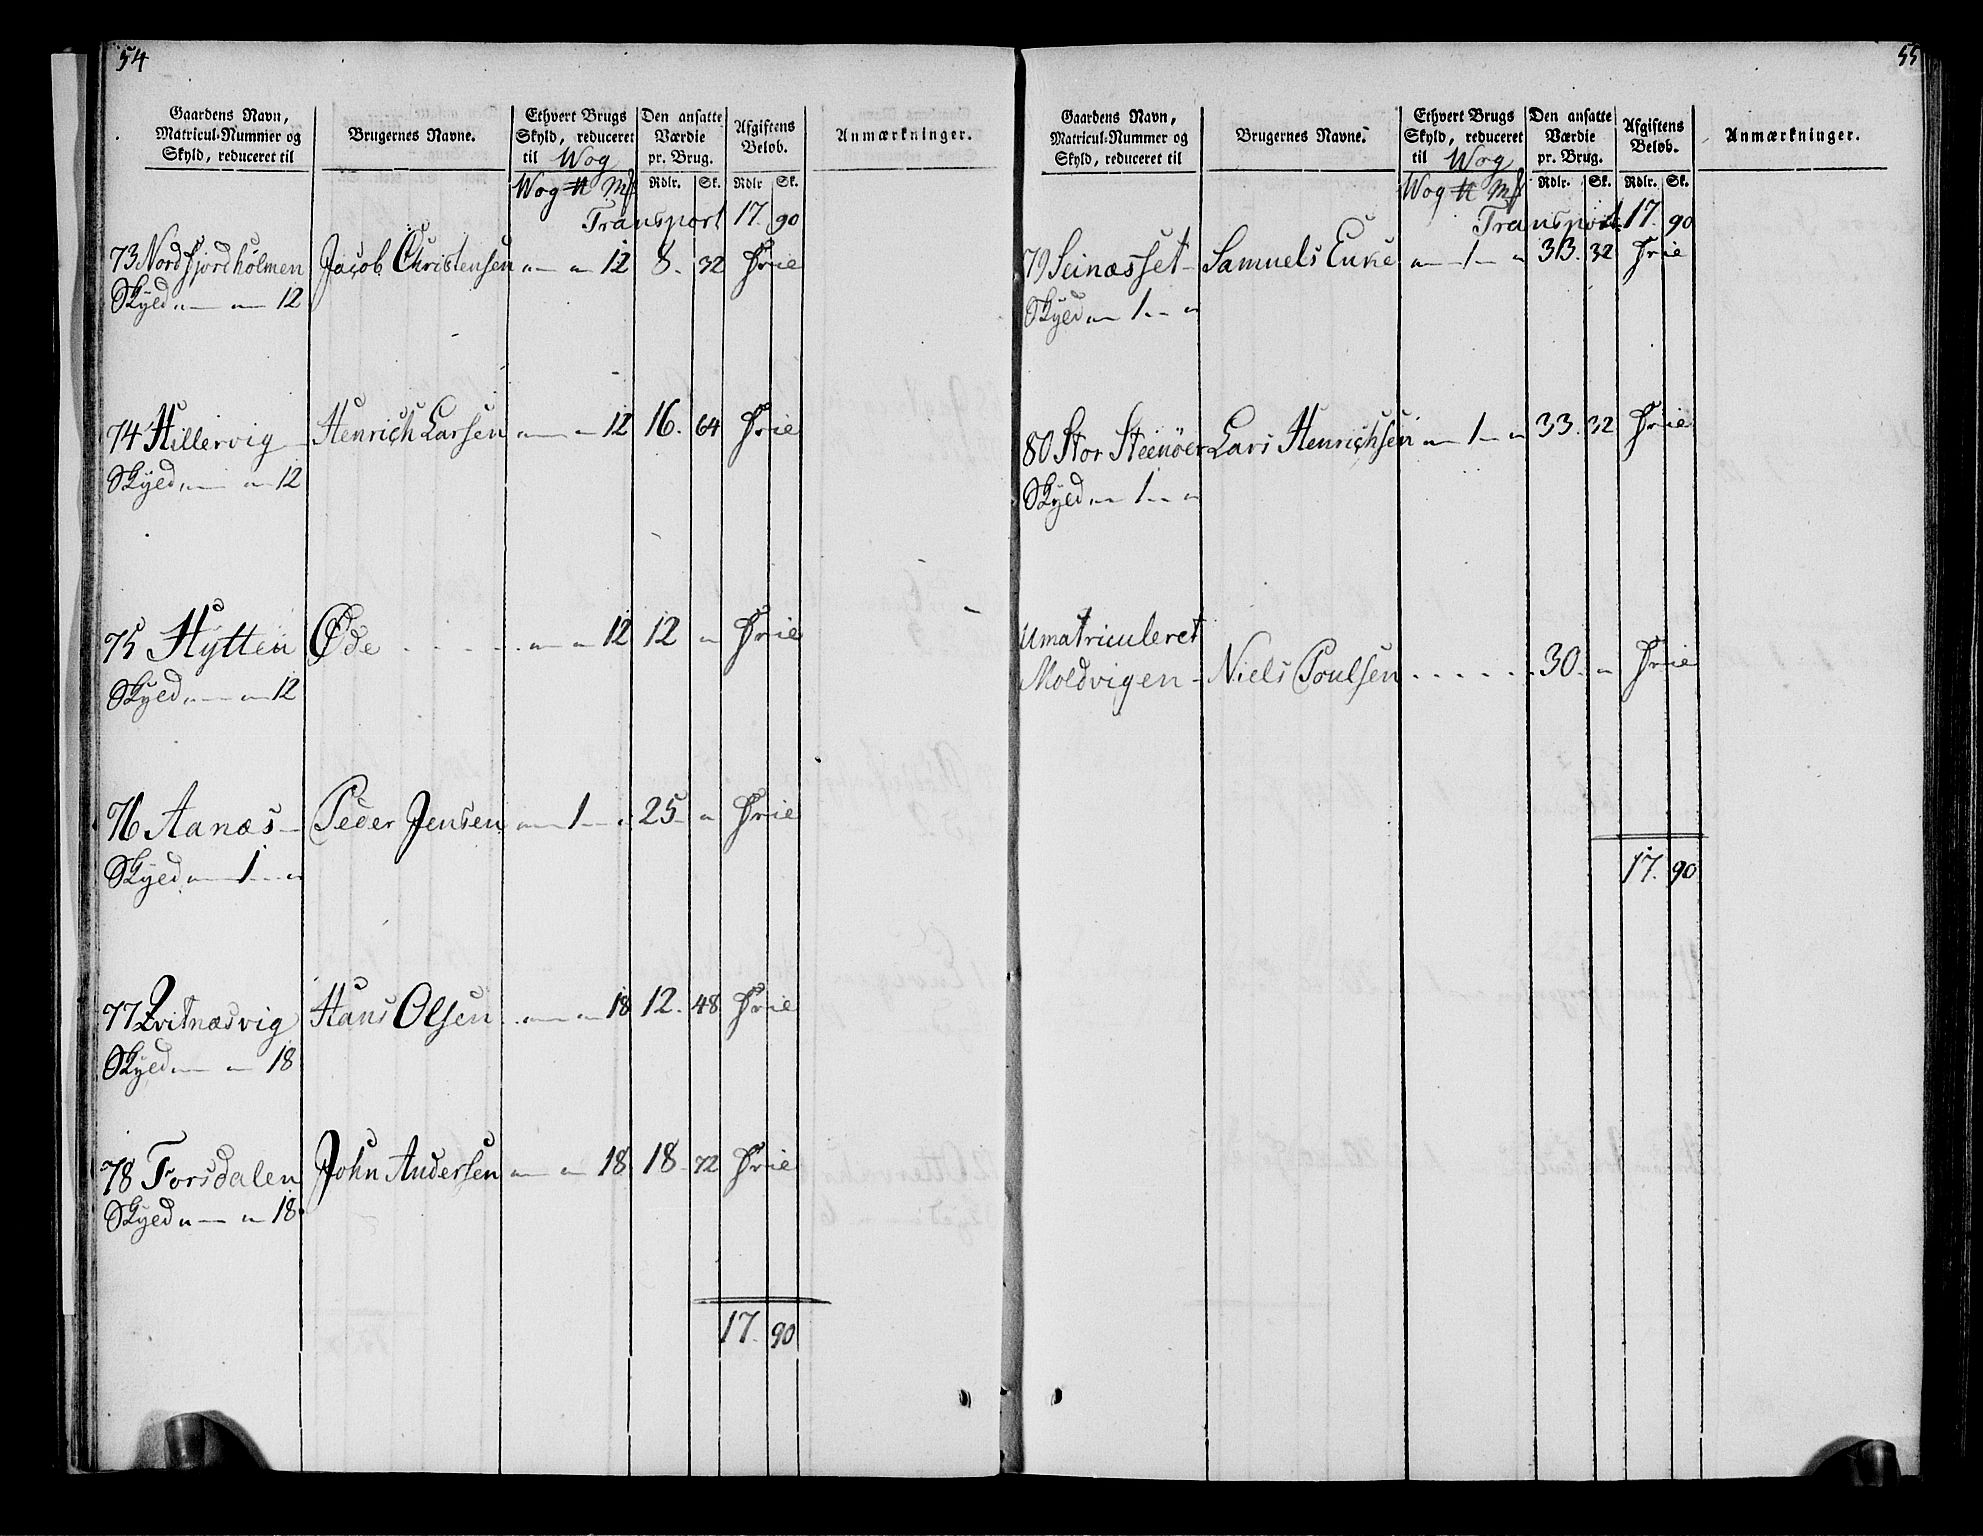 54
Gaardens Navn,
Matricul-Nummer og
Skyld, reduceret til
Brugernes Navne.
Ethvert Brugs
Skyld, reduceret
til Wog
Den ansatte
Værdie
pr. Brug.
Afgiftens
Beløb.
Anmærkninger.
Wog ℔ Mk
Rdlr. Sk. Rdlr Sk.
Transport 17. 90
73 Nordfjordholmen Jacob Christensen " — " 12 8. 32 Frie
Skyld " — " — 12
74 Hillervig Henrich Larsen " — " 12 16. 64 Frie
Skyld " — " — 12
75 Hytten Øde . . . . . " — " 12 12 " Frie
Skyld " — " — 12
76 Aanæs — Peder Jensen " — 1 — " 25 " Frie
Skyld " — 1 — "
77 Qvitnæsvig Hans Olsen " — " 18 12. 48 Frie
Skyld " — " — 18
78 Forsdalen John Andersen " — " 18 18 72 Frie
Skyld " — " — 18
17. 90
55
Gaardens Navn,
Matricul-Nummer og
Skyld, reduceret til
Brugernes Navne.
Ethvert Brugs
Skyld, reduceret
til Wog
Den ansatte
Værdie
pr. Brug.
Afgiftens
Beløb.
Anmærkninger.
Wog ℔ Mk
Rdlr. Sk. Rdlr. Sk.
Transport 17. 90
79 Seinæsset — Samuels Enke " — 1 — " 33. 32 Frie
Skyld " — 1 — "
80 Stor Steenøer Lars Henrichsen " — 1 — " 33. 32 Frie
Skyld " — 1 — "
Umatriculeret
Moldvigen — Niels Poulsen . . . . . . 30. " Frie
17. 90